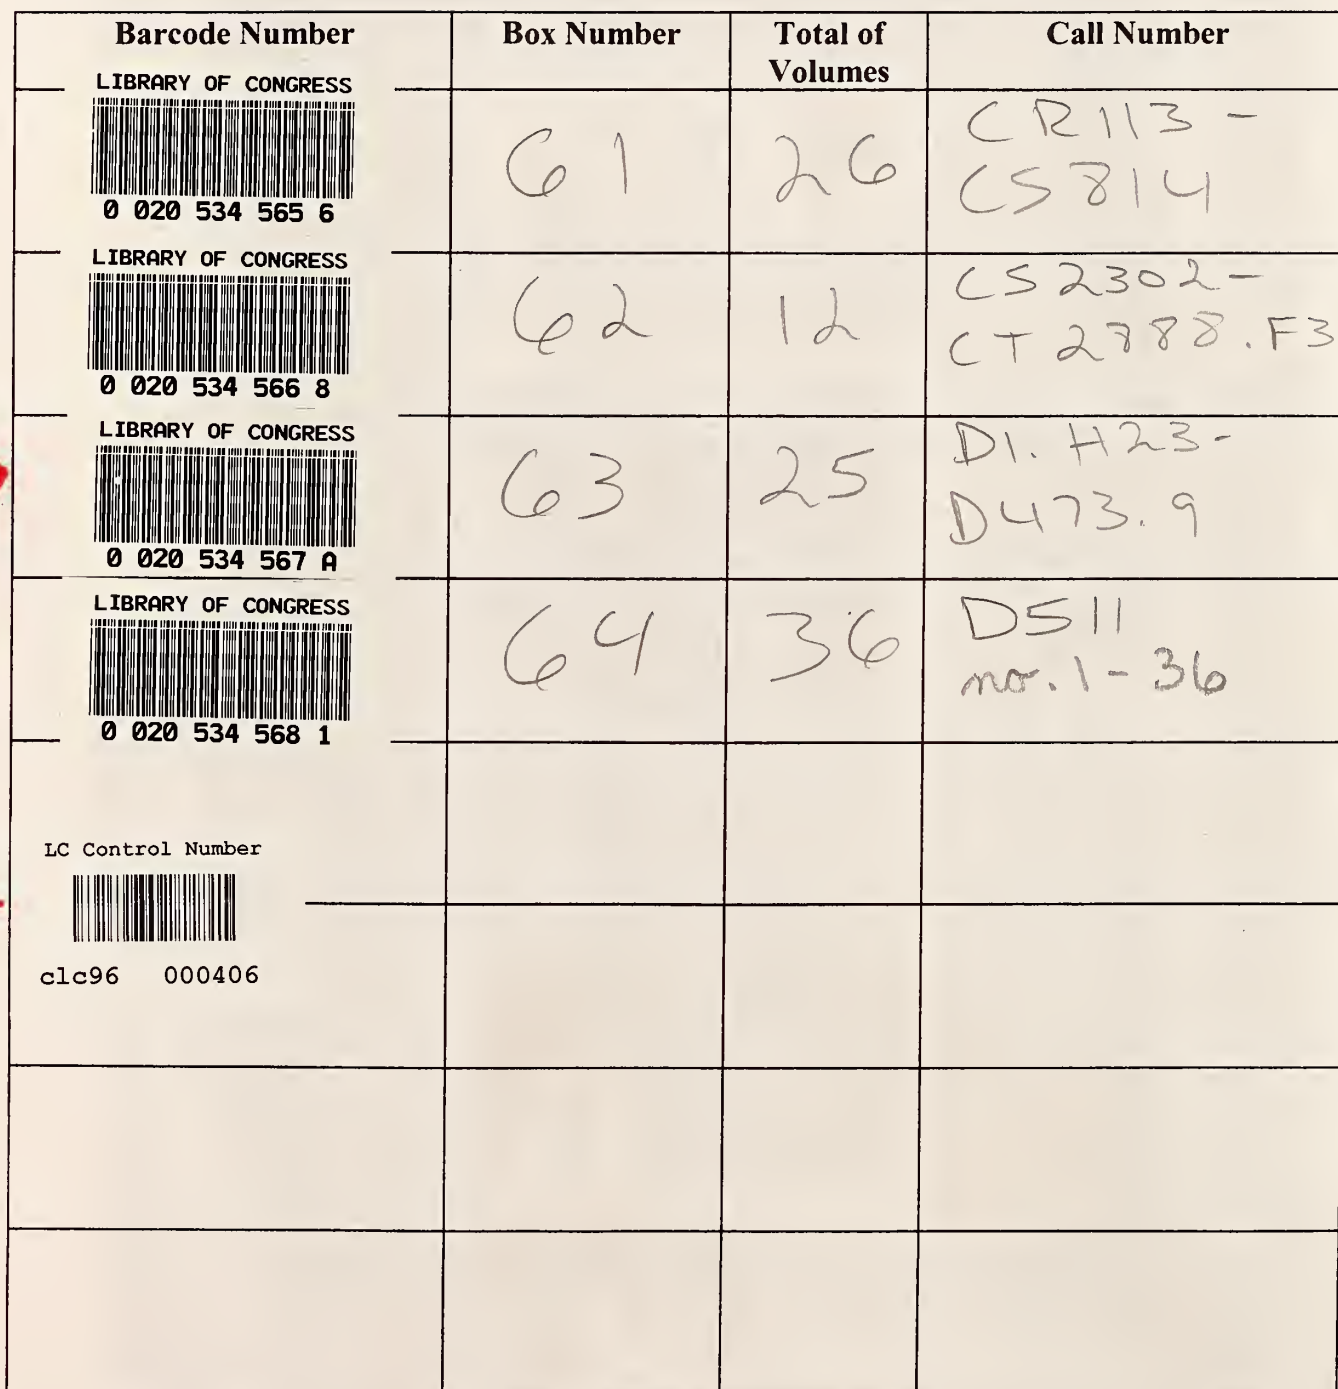 Barcode Number Box Number Total of Volumes Call Number
LIBRARY OF CONGRESS
0 020 534 565 6
61
26
CR113 -
CS814
LIBRARY OF CONGRESS
0 020 534 566 8
62
12
CS2302-
CT2788.F3
LIBRARY OF CONGRESS
0 020 534 567 A
63
25
D1. H23-
D473.9
LIBRARY OF CONGRESS
0 020 534 568 1
64
36
D511
no. 1 - 36
LC Control Number
clc96 000406